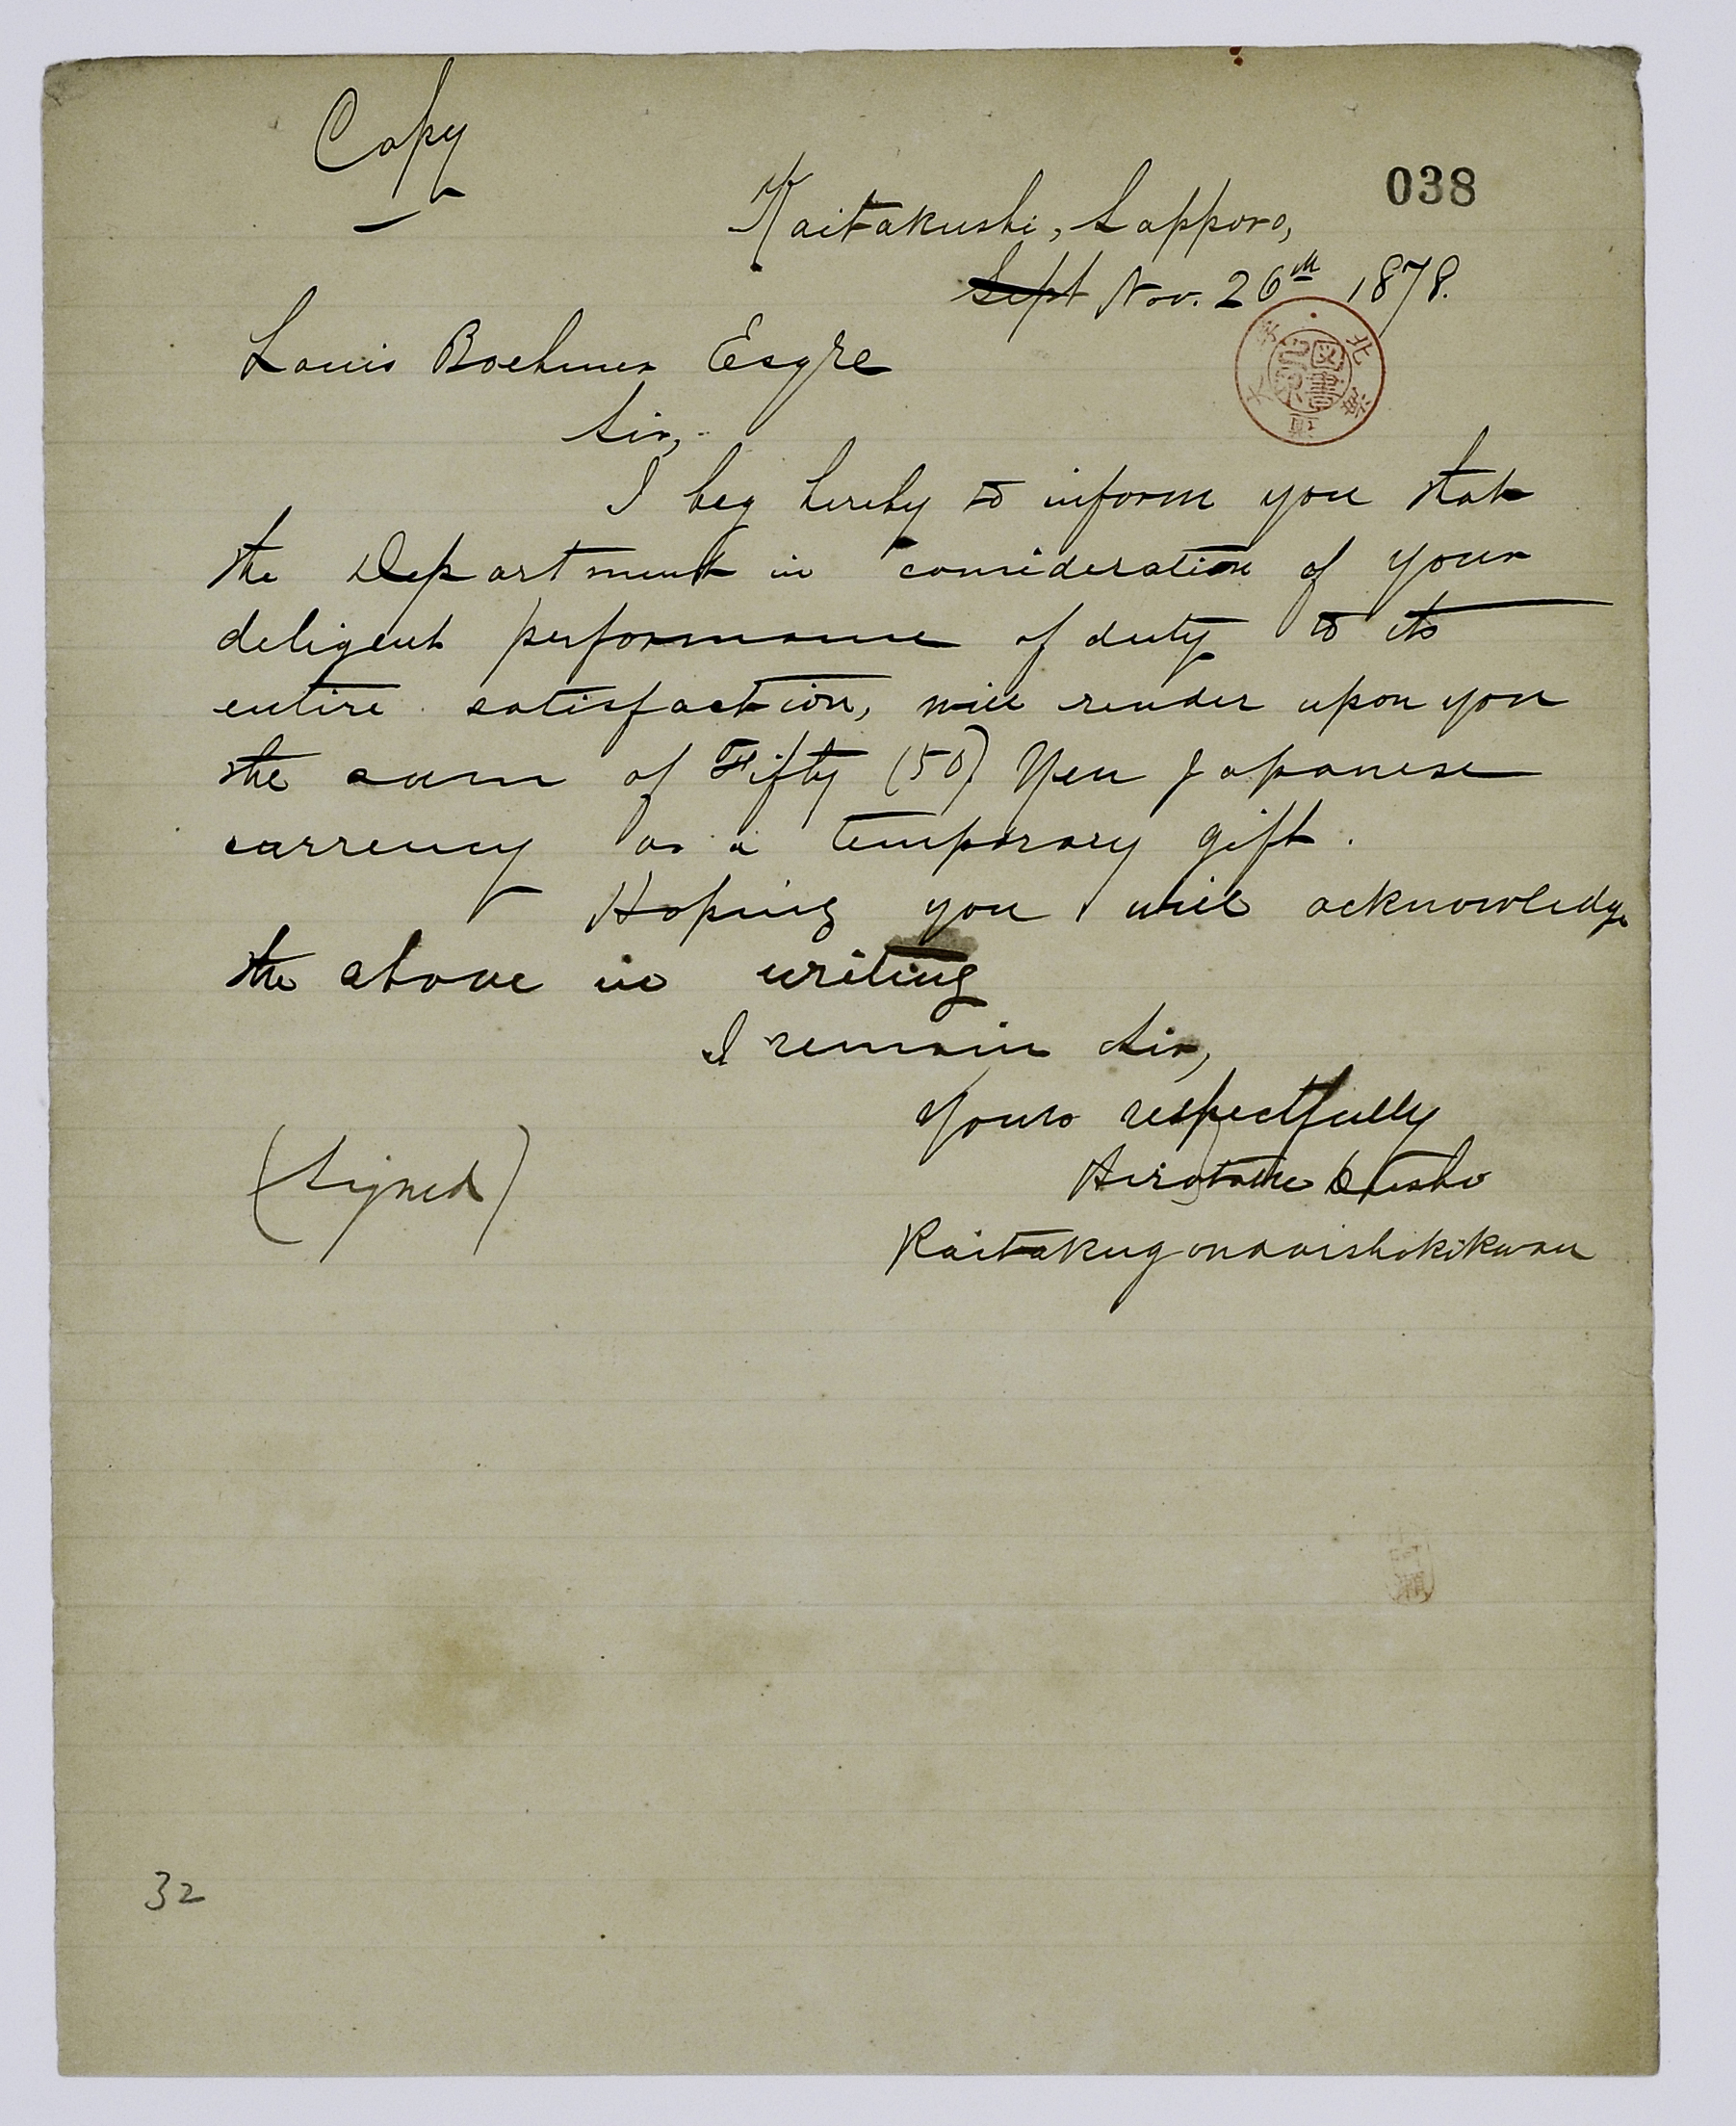 Copy
038
Kaitakushi, Sapporo,
Sept Nov. 26th 1878.
Louis Boehmer Esqre
Sir,
I beg hereby to inform you that
the Department in consideration of your
deligent performance of duty to its
entire satisfaction, will render upon you
the sum of Fifty (50) Yen Japanese
currency as a temporary gift.
Hoping you will acknowledge
the above in writing
I remain Sir,
Yours respectfully
(Signed)
Hirotake Dusho
Kaitakugondaishokikwan
32